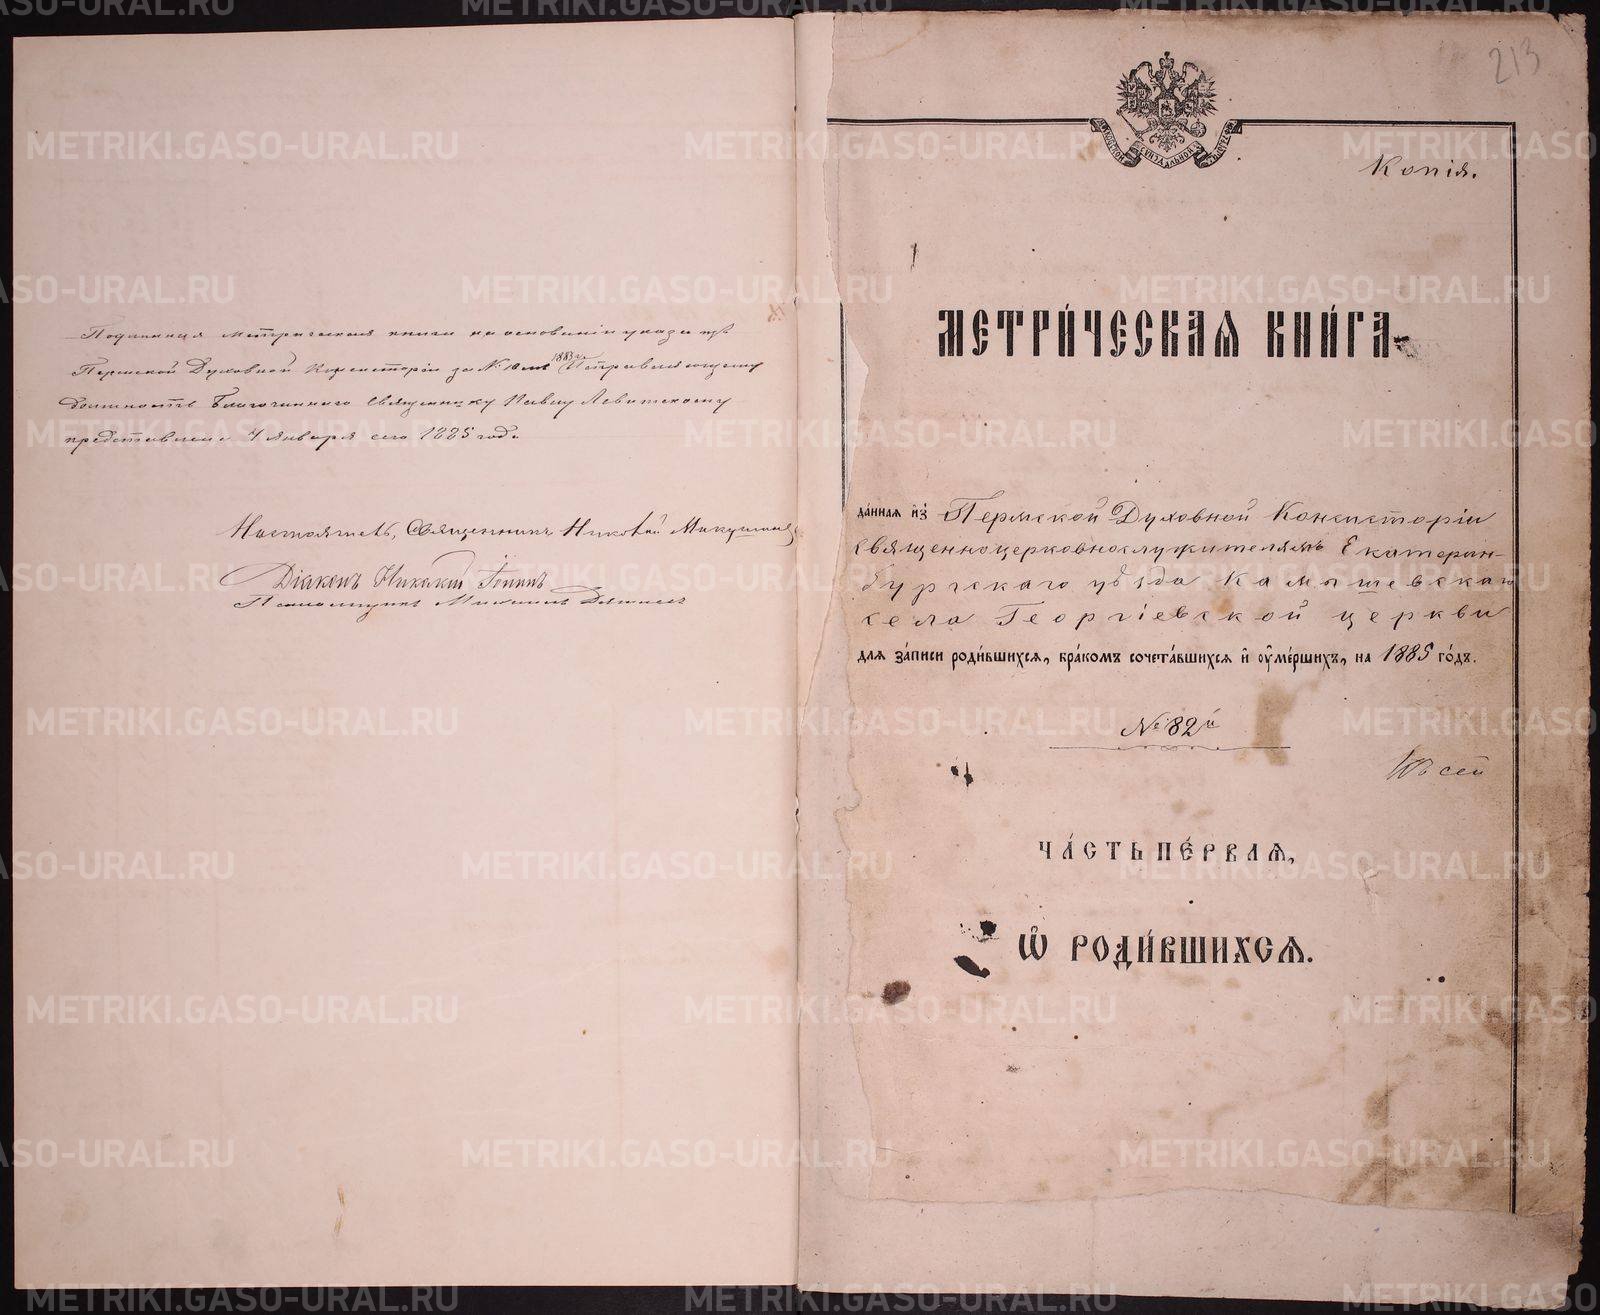 Подлинныя метрическия книги на основаніи указа изъ
Пермской Духовной Консисторіи за № 1883 г. Исправляющему
должность Благочиннаго Священнику Павлу Левитскому
представлены 4 января сего 1885 года.
Настоятель, Священникъ Николай
Діаконъ Никакій Попинъ
Псаломщикъ Михаилъ
213
Копія.
МЕТРИ́ЧЕСКАѦ КНИ́ГА
да́нная изъ Пермской Духовной Консисторіи
Священноцерковнослужителямъ Екатерин-
бургскаго уѣзда Камышевскаго
села Георгіевской церкви
для за́писи роди́вшихся, бра́комъ сочета́вшихся и оуме́ршихъ, на 1885 го́дъ.
№ 82й
Въ сей
ЧА́СТЬ ПЕ́РВАѦ,
Ѡ РОДИ́ВШИХСѦ.
METRIKI.GASO-URAL.RU